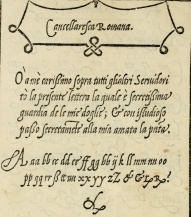 Cancellaresca Romana.
O a me carissimo sopra tutti gli altri Servidori
to la presente lettera la quale è secretissima
guardia de le mie doglie; & con istudioso
passo secretamente alla mia amata la
A a a bb cc dd ee ff gg hh ij k ll mm nn oo
pp qq rr ſs tt uu xx yy zz &